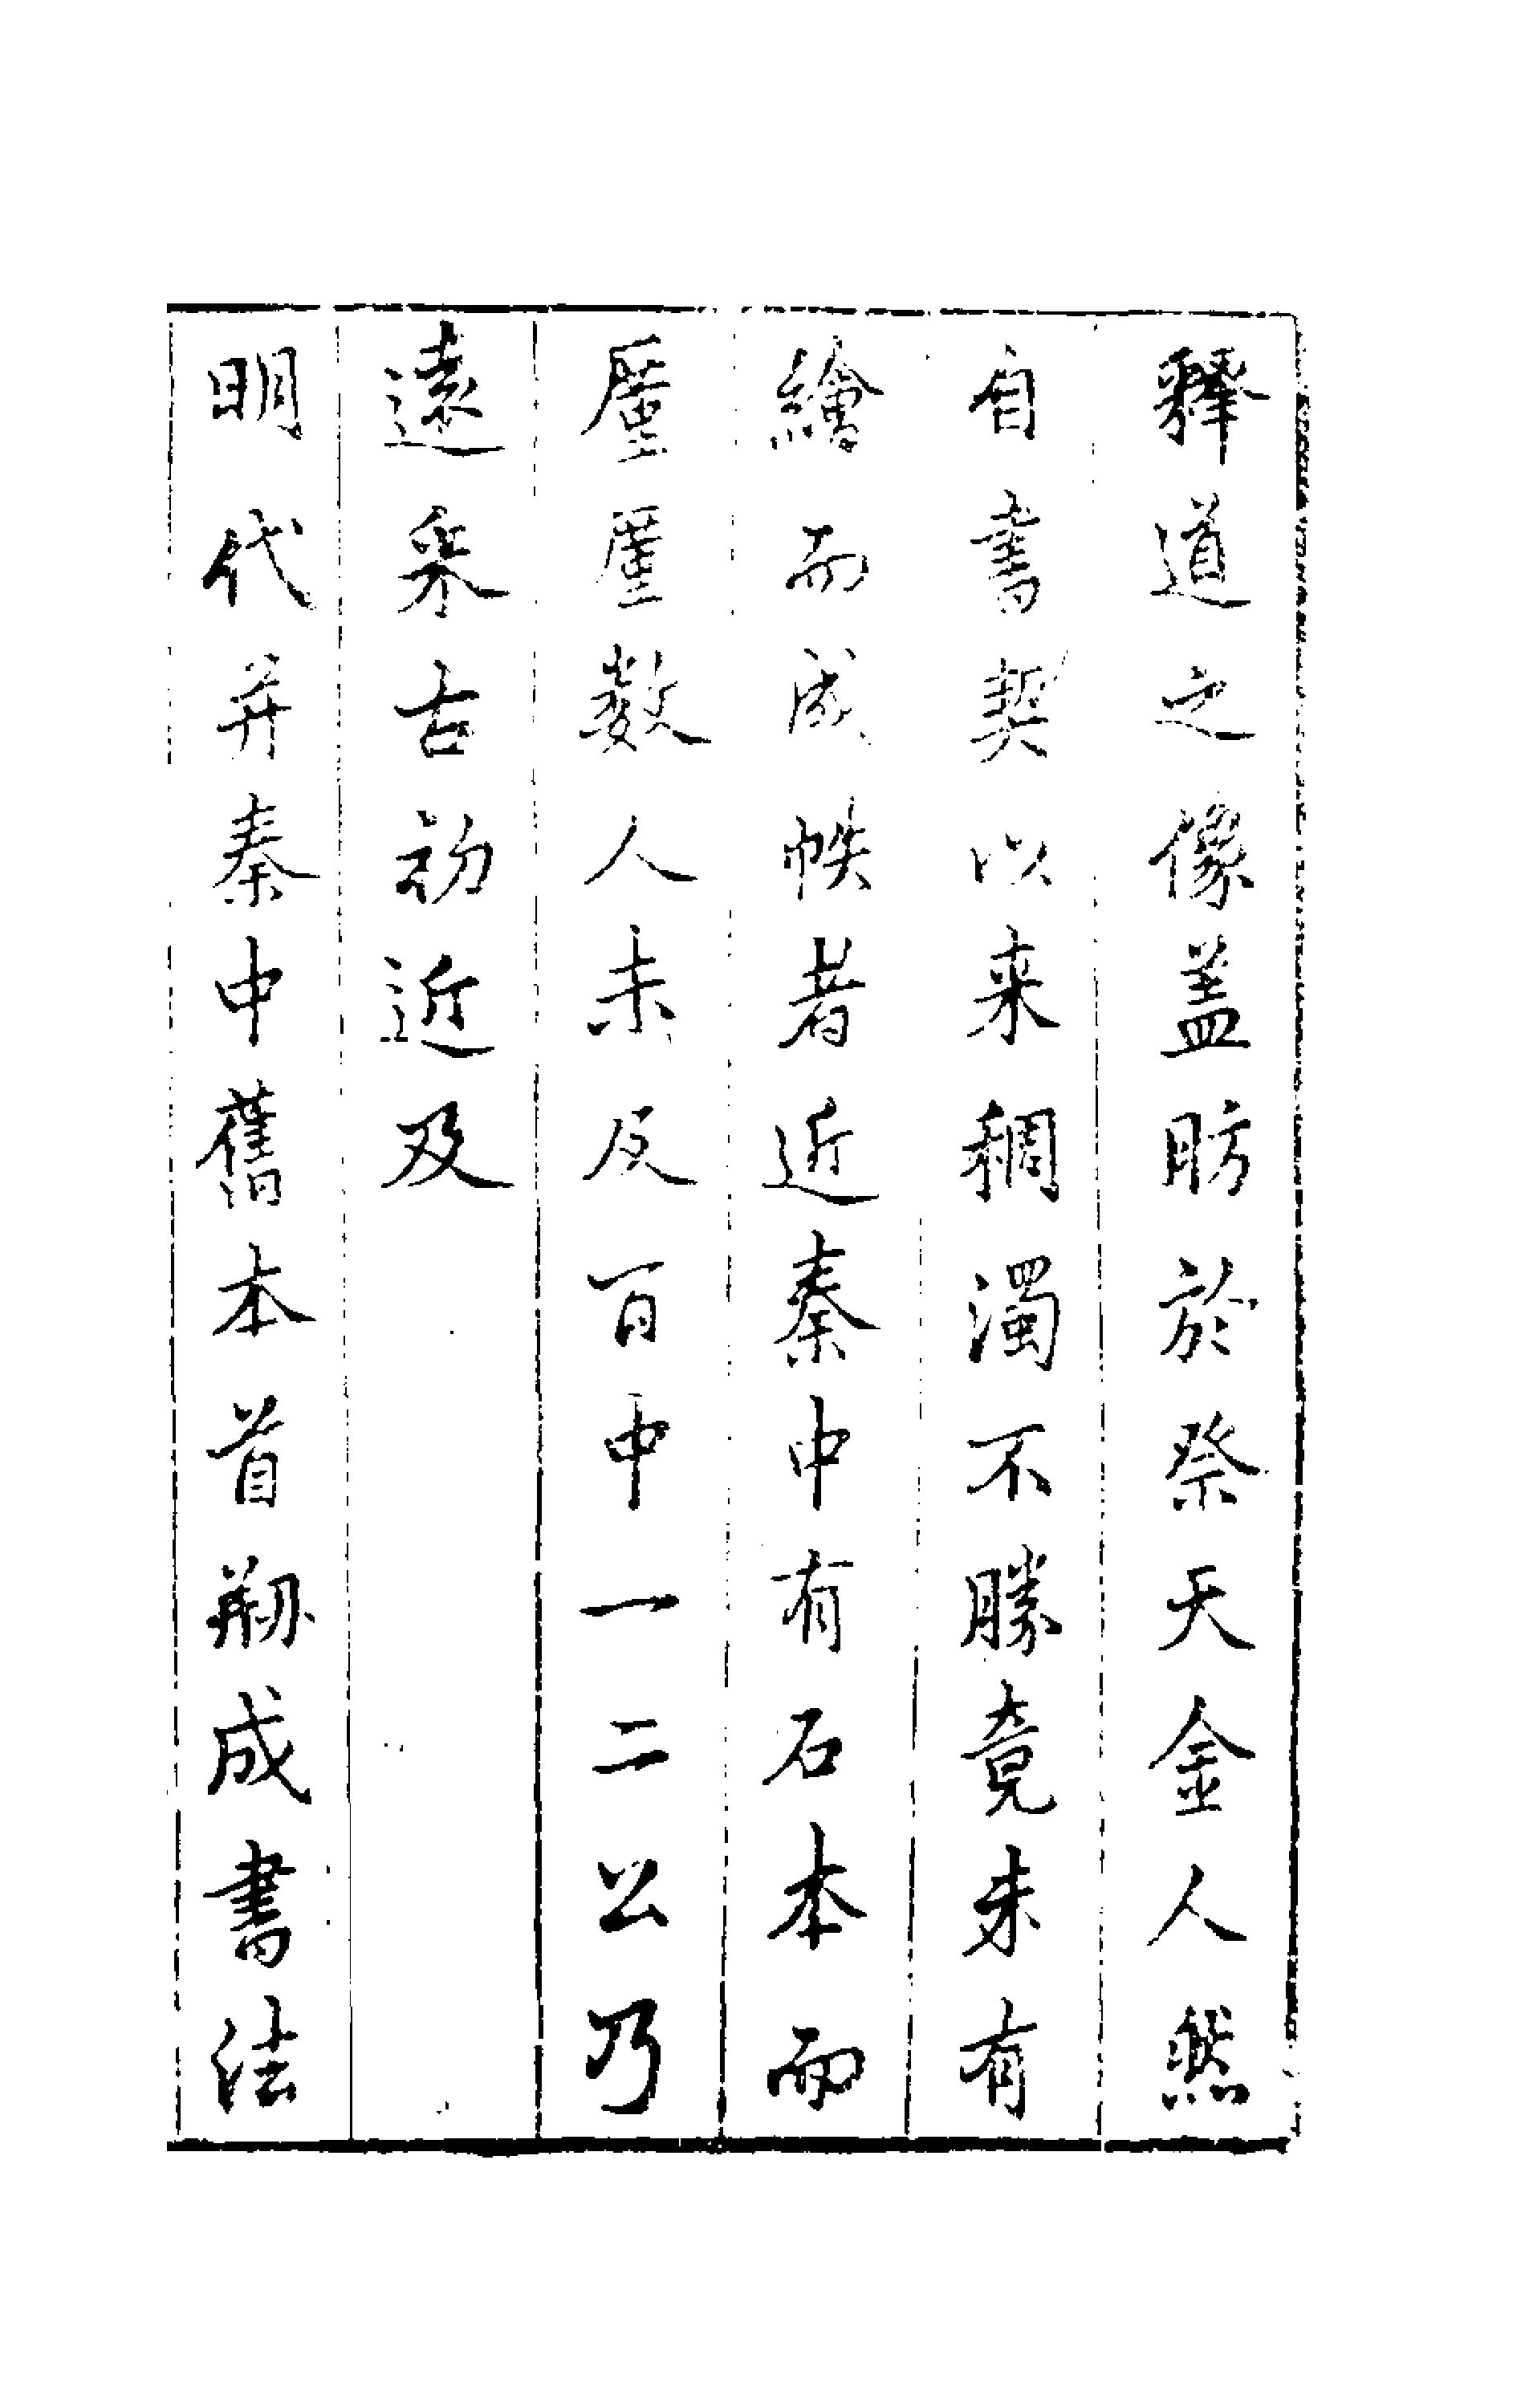 釋道之像蓋肪於祭天金人然
自書契以來稠濁不勝竟未有
繪而成帙者近秦中有石本而
厪厪數人未及百中一二公乃
遠采古初近及
明代并秦中舊本首剏成書法